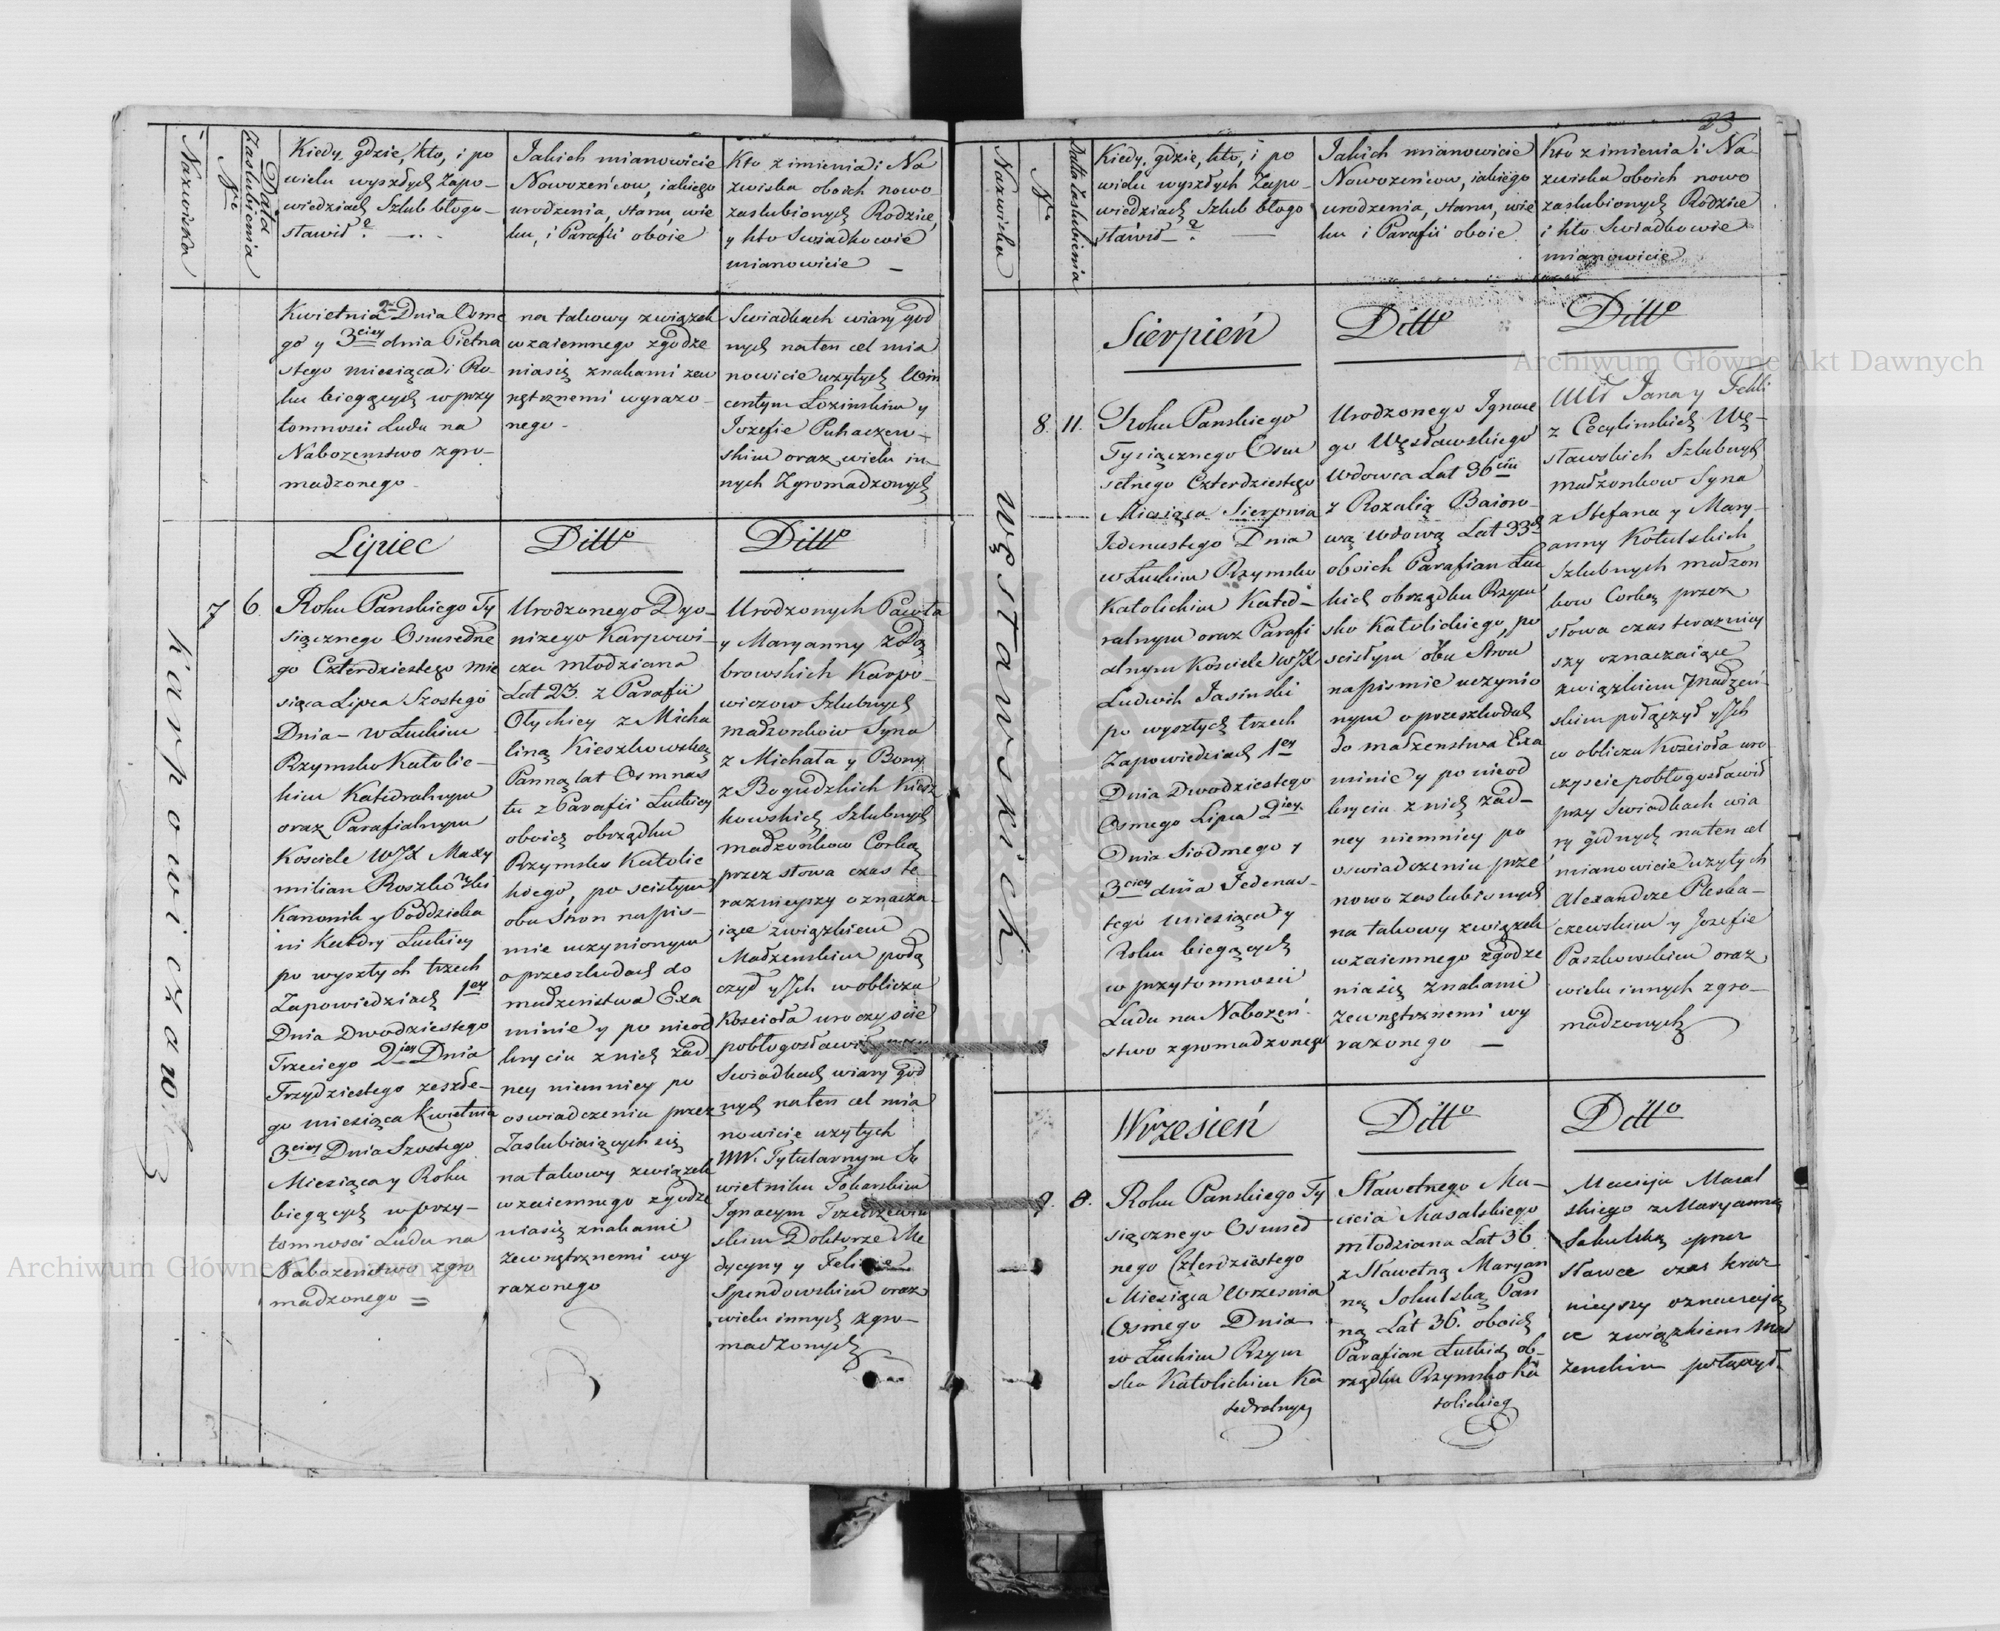 23
Nazwiska
Nr
Data Zaslubienia
Kiedy, gdzie, kto, i po
wielu wyszłych Zapo-
wiedziach Szlub błogo-
sławił?
Jakich mianowicie
Nowozeńcow, iakiego
urodzenia, stanu, wie
ku, i Parafii oboie
Kto z imienia i Na
zwiska oboich nowo
zaslubionych Rodzice
y kto Swiadkowie
mianowicie
Kwietnia 2a Dnia Osme
go y 3ciey dnia Pietna
stego miesiąca i Ro-
ku biegących w przy
tomnosci Ludu na
Nabozenstwo zgro-
madzonego
na takowy związek
wzaiemnego zgodze
niasię znakami zew
nętrznemi wyrazo-
nego -
Swiadkach wiary god
nych naten cel mia
nowicie uzytych Win
centym Łozinskim y
Jozefie Puhaczew-
skim oraz wielu in-
nych Zgromadzonych
Lipiec
Ditto
Ditto
Karpowiczow
7
6
Roku Panskiego Ty
siącznego Osmsetne
go Czterdziestego mie
siąca Lipca Szostego
Dnia - w Łuckim
Rzymsko Katolic-
kim Katedralnym
oraz Parafialnym
Kosciele WJX Maxy
milian Roszkowski
Kanonik y Poddzieka
ni Katdry Łuckiey
po wyszłych trzech
Zapowiedziach 1ey
Dnia Dwodziestego
Trzeciego 2iey Dnia
Trzydziestego zeszłe-
go miesiąca Kwietnia
3ciey Dnia Szostego
Miesiąca y Roku
biegących w przy-
tomnosci Ludu na
Nabozenstwo zgro
madzonego =
Urodzonego Dyo-
nizego Karpowi-
cza młodziana
Lat 23. z Parafii
Ołyckiey z Micha
liną Kieszkowską
Panną lat Osmnas
tu z Parafii Łuckiey
oboich obrządku
Rzymsko Katolic
kiego, po scisłym
obu Stron napis-
mie uczynionym
o przeszkodach do
małzeństwa Exa
minie y po nieod
kryciu z nich zad
ney niemniey po
oswiadczeniu przez
Zaslubiaiących się
na takowy związek
wzaiemnego zgodze
niasię znakami
zewnętrznemi wy
razonego
Urodzonych Pawła
y Maryanny z Dą
browskich Karpo-
wiczow Szlubnych
małzonkow Syna
z Michała y Bony
z Bogudzkich Kiesz
kowskich Szlubnych
małzonkow Corką
przez słowa czas te
raznieyszy oznacza-
iące związkiem
Małzenskim połą
czył y Ich w obliczu
Koscioła uroczyscie
pobłogosławił przy
Swiadkach wiary god
nych naten cel mia
nowicie uzytych
WW. Tytularnym So
wietniku
Ignacym
skim Doktorze Me
dycyny y Felicie
Spendowskim oraz
wielu innych zgro-
madzonych
Nazwiska
Nr
Datta Zaslubienia
Kiedy, gdzie, kto, i po
wielu wyszłych Zapo-
wiedziach Szlub błogo
sławił?
Jakich mianowicie
Nowozeńcow, iakiego
urodzenia, stanu, wie
ku i Parafii oboie
Kto z imienia i Na
zwiska oboich nowo
zaslubionych Rodzice
i kto Swiadkowie
mianowicie
Sierpień
Ditto
Ditto
Węsławskich
8.
11.
Roku Panskiego
Tysiącznego Osm
setnego Czterdziestego
Miesiąca Sierpnia
Jedenastego Dnia
w Łuckim Rzymsko
Katolickim Kated-
ralnym oraz Parafi
alnym Kosciele WJX
Ludwik Jasinski
po wyszłych trzech
Zapowiedziach 1ey
Dnia Dwodziestego
Osmego Lipca 2iey
Dnia Siodmego y
3ciey dnia Jedenas-
tego miesiąca y
Roku biegących
w przytomnosci
Ludu na Nabozeń-
stwo zgromadzonego
Urodzonego Ignace
go Węsławskiego
Wdowca Lat 36ciu
y Rozalią Baioro-
wą wdową Lat 33ch
oboich Parafian Łuc
kich obrządku Rzym
sko Katolickiego, po
scisłym obu Stron
napismie uczynio
nym o przeszkodach
do małzenstwa Exa
minie y po nieod
kryciu z nich zad-
ney niemniey po
oswiadczeniu prze
nowo zaslubionych
na takowy związek
wzaiemnego zgodze
niasię znakami
zewnętrznemi wy
razonego
Jana y Tekli
z Cecylinskich Wę-
sławskich Szlubnych
małzonkow Syna
z Stefana y Mary-
anny Kotulskich
Szlubnych małzon
kow Corką przez
słowa czas teraznie
szy oznaczaiące
związkiem Małżeń-
skim połączył y Ich
w obliczu Koscioła uro
czyscie pobłogosławił
przy Swiadkach wia
ry godnych naten cel
mianowicie uzytych
Alexandrze Pleska-
czewskim y Jozefie
Paszkowskim oraz
wielu innych zgro-
madzonych
Wrzesień
Ditto
Ditto
9.
8.
Roku Panskiego Ty
siącznego Osmset
nego Czterdziestego
Miesiąca Wrzesnia
Osmego Dnia
w Łuckim Rzym
sko Katolickim Ka
tedralnym
Sławetnego Ma-
cieia Masalskiego
młodziana Lat 36
z Sławetną Maryan
ną Sokulską Pan
ną Lat 36. oboich
Parafian Łuckich ob-
rządku Rzymsko Ka
tolickieg
Macieja Masal
skiego z Maryanną
Sakulską przez
słowa czas teraz
nieyszy oznaczają
ce związkiem Mał
zenskim połączył-
Archiwum Główne Akt Dawnych
Archiwum Główne Akt Dawnych